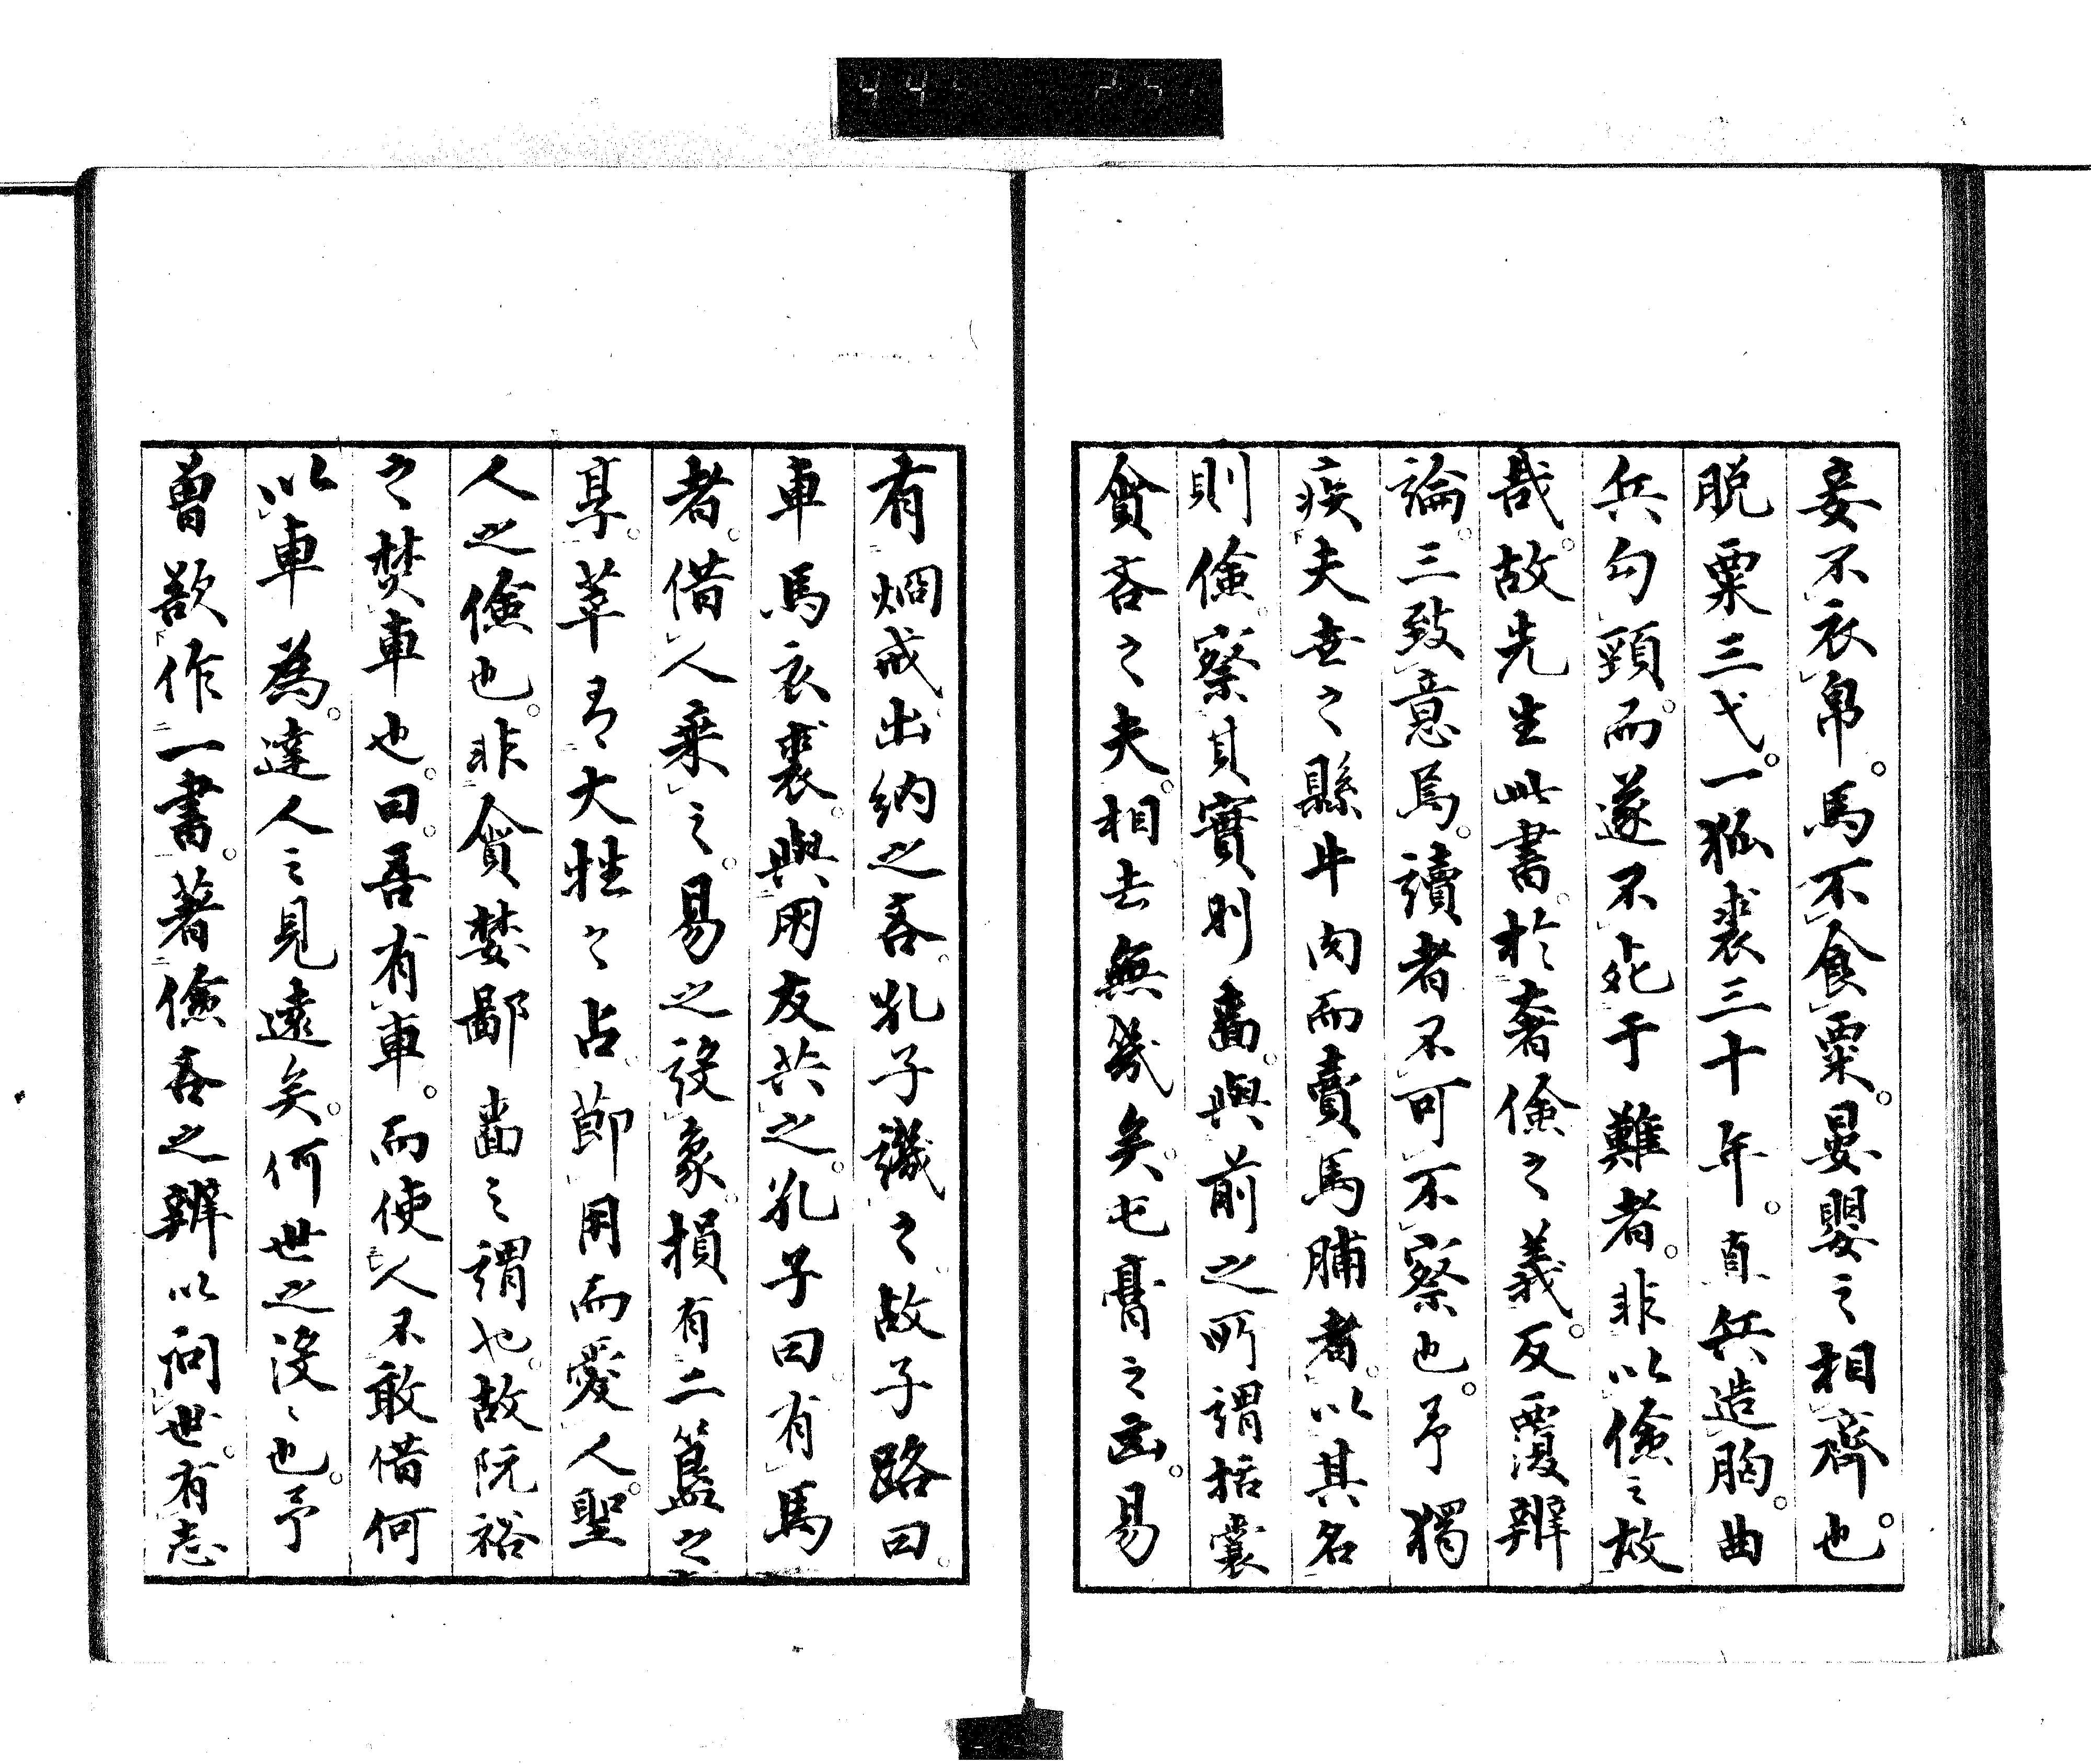 妾不衣帛。馬不食粟。晏嬰之相齊也。
脱粟三弋。一狐裘三十年。直兵造胸。曲
兵勾頸。而遂不死于難者。非以儉之故
哉。故先生此書。於奢儉之義。反覆辨
論。三致意焉。讀者不可不察也。予獨
疾夫世之縣牛肉而賣馬脯者。以其名
則儉。察其實則嗇。與前之所謂括囊
貧吝之夫。相去無幾矣。屯膏之凶。易
有烱戒。出納之吝。孔子譏之。故子路曰。
車馬衣裘。與朋友共之。孔子曰。有馬
者。借人乘之。易之設象。損有二簋之
享。萃有大牲之占。節用而愛人。聖
人之儉也。非貪婪鄙嗇之謂也。故阮裕
之焚車也。曰。吾有車。而使人不敢借。何
以車為。達人之見遠矣。何世之沒々也。予
曾欲作一書。著儉吝之辨以問世。有志